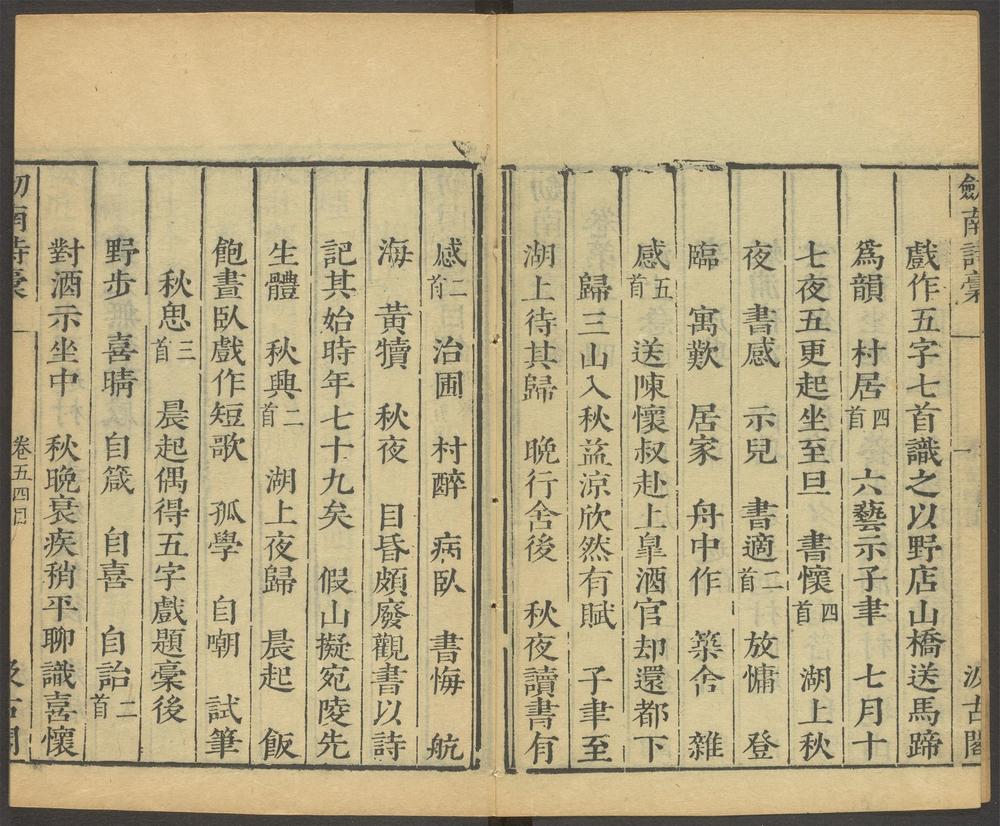 劒南詩稾
汲古閣
戲作五字七首識之以野店山橋送馬蹄
爲韻　村居四首　六藝示子聿　七月十
七夜五更起坐至旦　書懷四首　湖上秋
夜　書感　示兒　書適二首　放慵　登
臨　寓歎　居家　舟中作　築舍　雜
感五首　送陳懷叔赴上臯酒官却還都下
歸三山入秋益凉欣然有賦　子聿至
湖上待其歸　晚行舍後　秋夜讀書有
感二首　治圃　村醉　病臥　書悔　航
海　黃犢　秋夜　目昏頗廢觀書以詩
記其始時年七十九矣　假山擬宛陵先
生體　秋興二首　湖上夜歸　晨起　飯
飽晝臥戲作短歌　孤學　自嘲　試筆
秋思三首　晨起偶得五字戲題稾後
野步　喜晴　自箴　自喜　自詒二首
對酒示坐中　秋晚衰疾稍平聊識喜懷
卷五四目